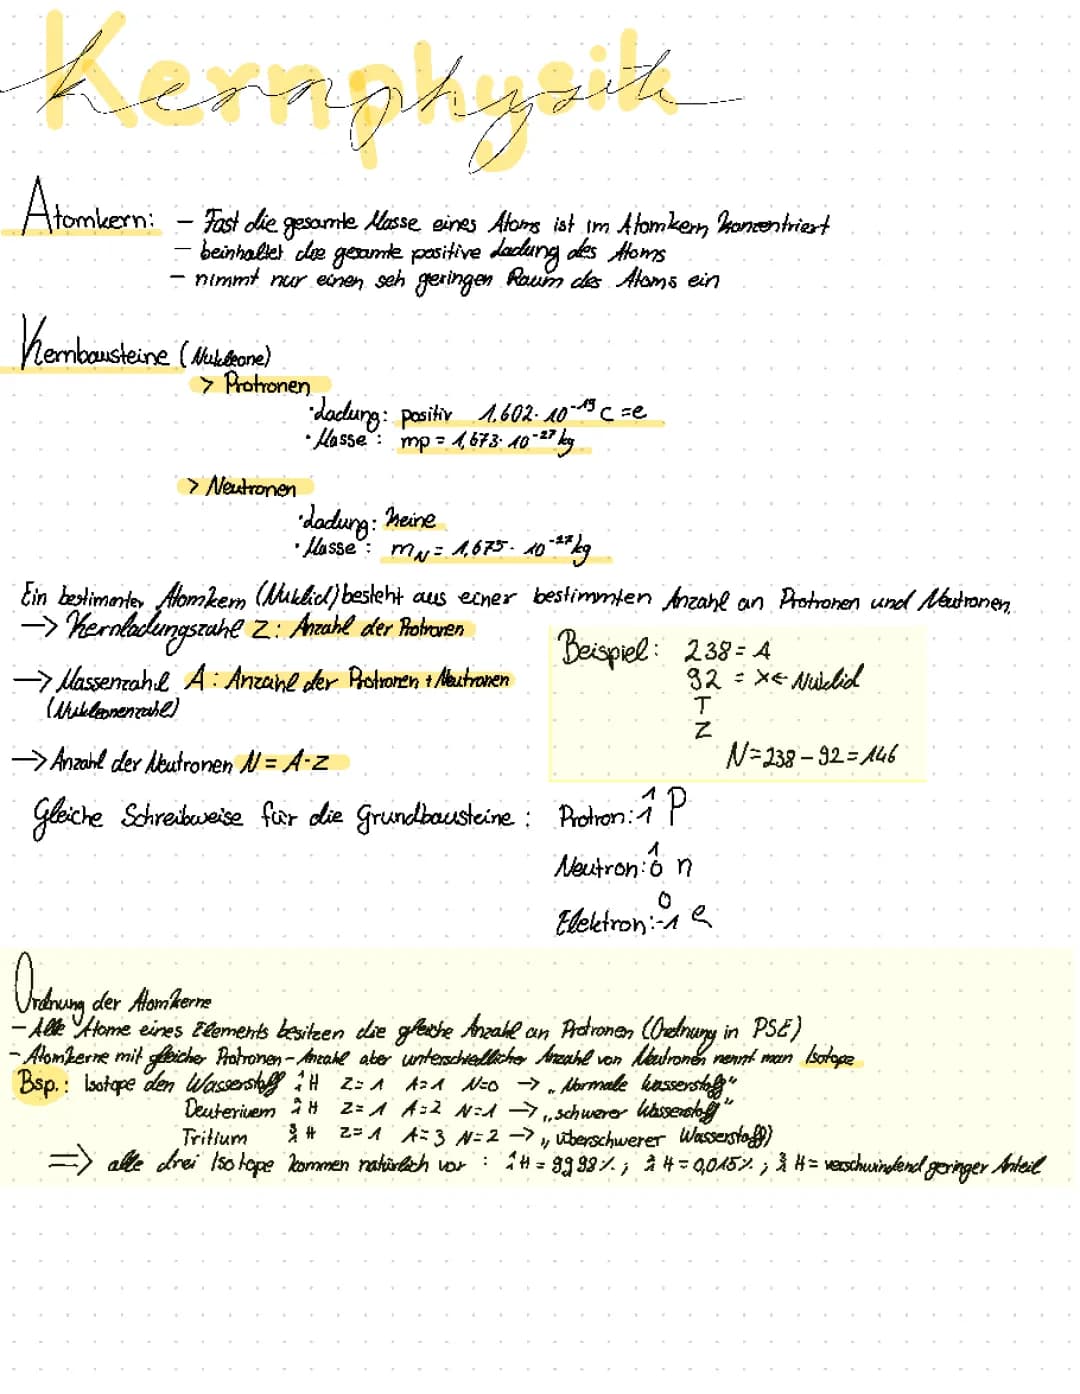 Kernphysik
Atomkern: - Fast die gesamte Masse eines Atoms ist im Atomkern konzentriert
- beinhaltet die gesamte positive Ladung des Atoms
- nimmt nur einen seh geringen Raum des Atoms ein
Kernbausteine (Nukleone)
> Protronen
· Ladung: positiv 1,602 · 10⁻¹⁹ C = e
· Masse: mp = 1,673 · 10⁻²⁷ kg
> Neutronen
· Ladung: keine
· Masse: m_N = 1,675 · 10⁻²⁷ kg
Ein bestimmter Atomkern (Nuklid) besteht aus einer bestimmten Anzahl an Protronen und Neutronen
-> Kernladungszahl Z: Anzahl der Protronen
-> Massenzahl A: Anzahl der Protronen + Neutronen
(Nukleonenzahl)
-> Anzahl der Neutronen N = A-Z
Beispiel: 238 = A
92 = X <- Nuklid
T
Z
N = 238 - 92 = 146
Gleiche Schreibweise für die Grundbausteine: Protron: ¹₁ P
Neutron: ¹₀ n
Elektron: ⁰₋₁ e
Ordnung der Atomkerne
- Alle Atome eines Elements besitzen die gleiche Anzahl an Protronen (Ordnung in PSE)
- Atomkerne mit gleicher Protronen-Anzahl aber unterschiedlicher Anzahl von Neutronen nennt man Isotope
Bsp.: Isotope den Wasserstoff ¹₁H Z=1 A=1 N=0 -> „Normale Wasserstoff"
Deuterium ²₁H Z=1 A=2 N=1 -> „schwerer Wasserstoff"
Tritium ³₁H Z=1 A=3 N=2 -> „überschwerer Wasserstoff)
=> alle drei Isotope kommen natürlich vor: ¹₁H = 99,98%; ²₁H = 0,015%; ³₁H = verschwindend geringer Anteil